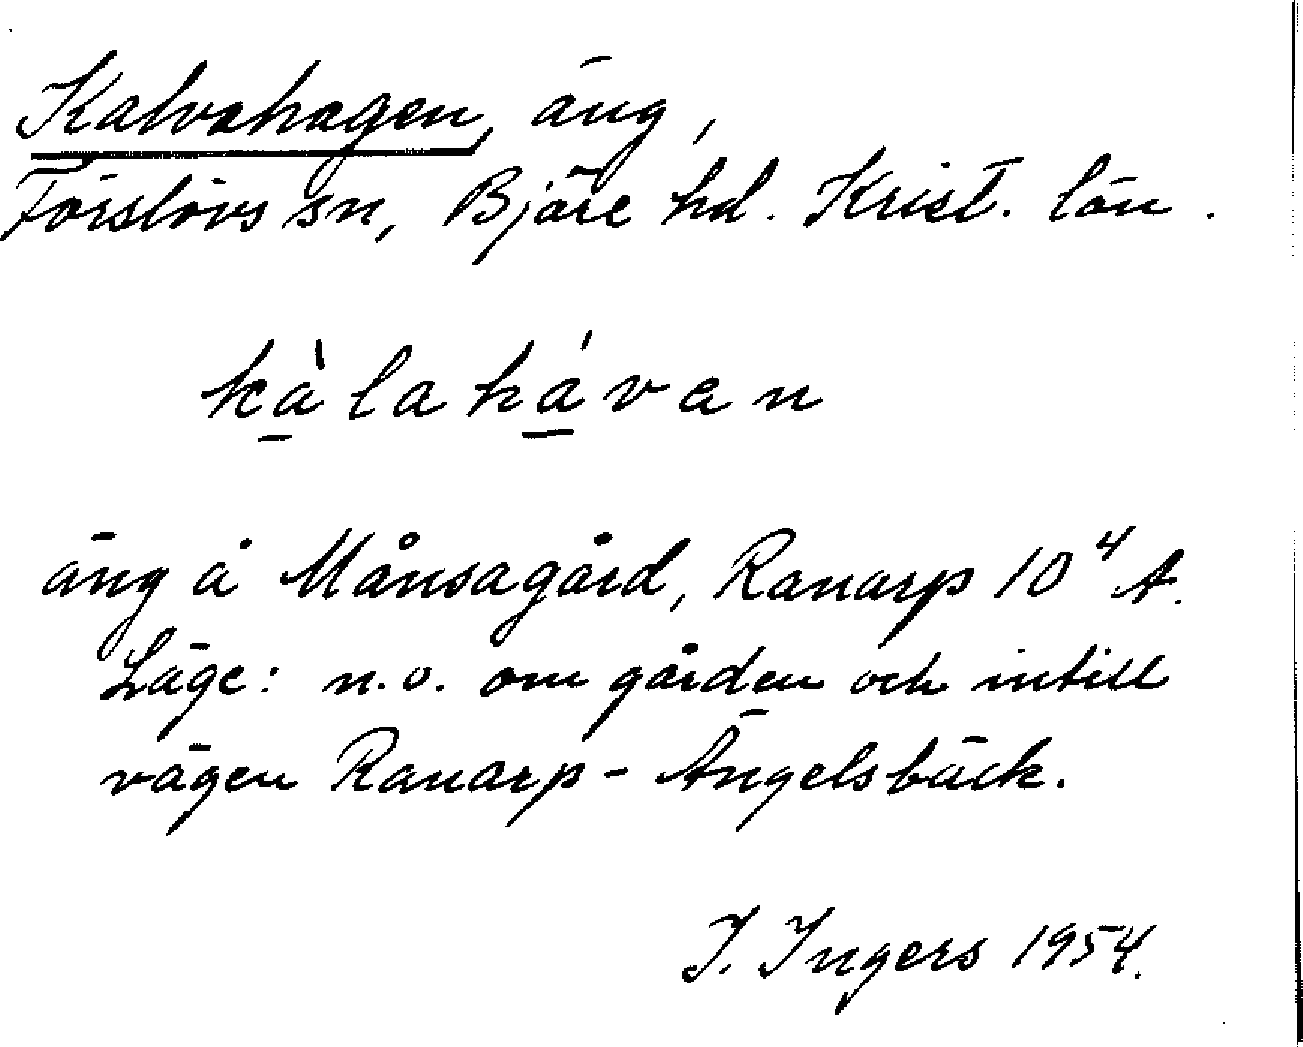 Kalvahagen, äng,
Förslövs sn, Bjäre hd. Krist. län.
kà̱lahá̱van
äng å Månsagård, Ranarp 10⁴ A.
Läge: n.o. om gården och intill
vägen Ranarp - Ängelsbäck.
I. Ingers 1954.